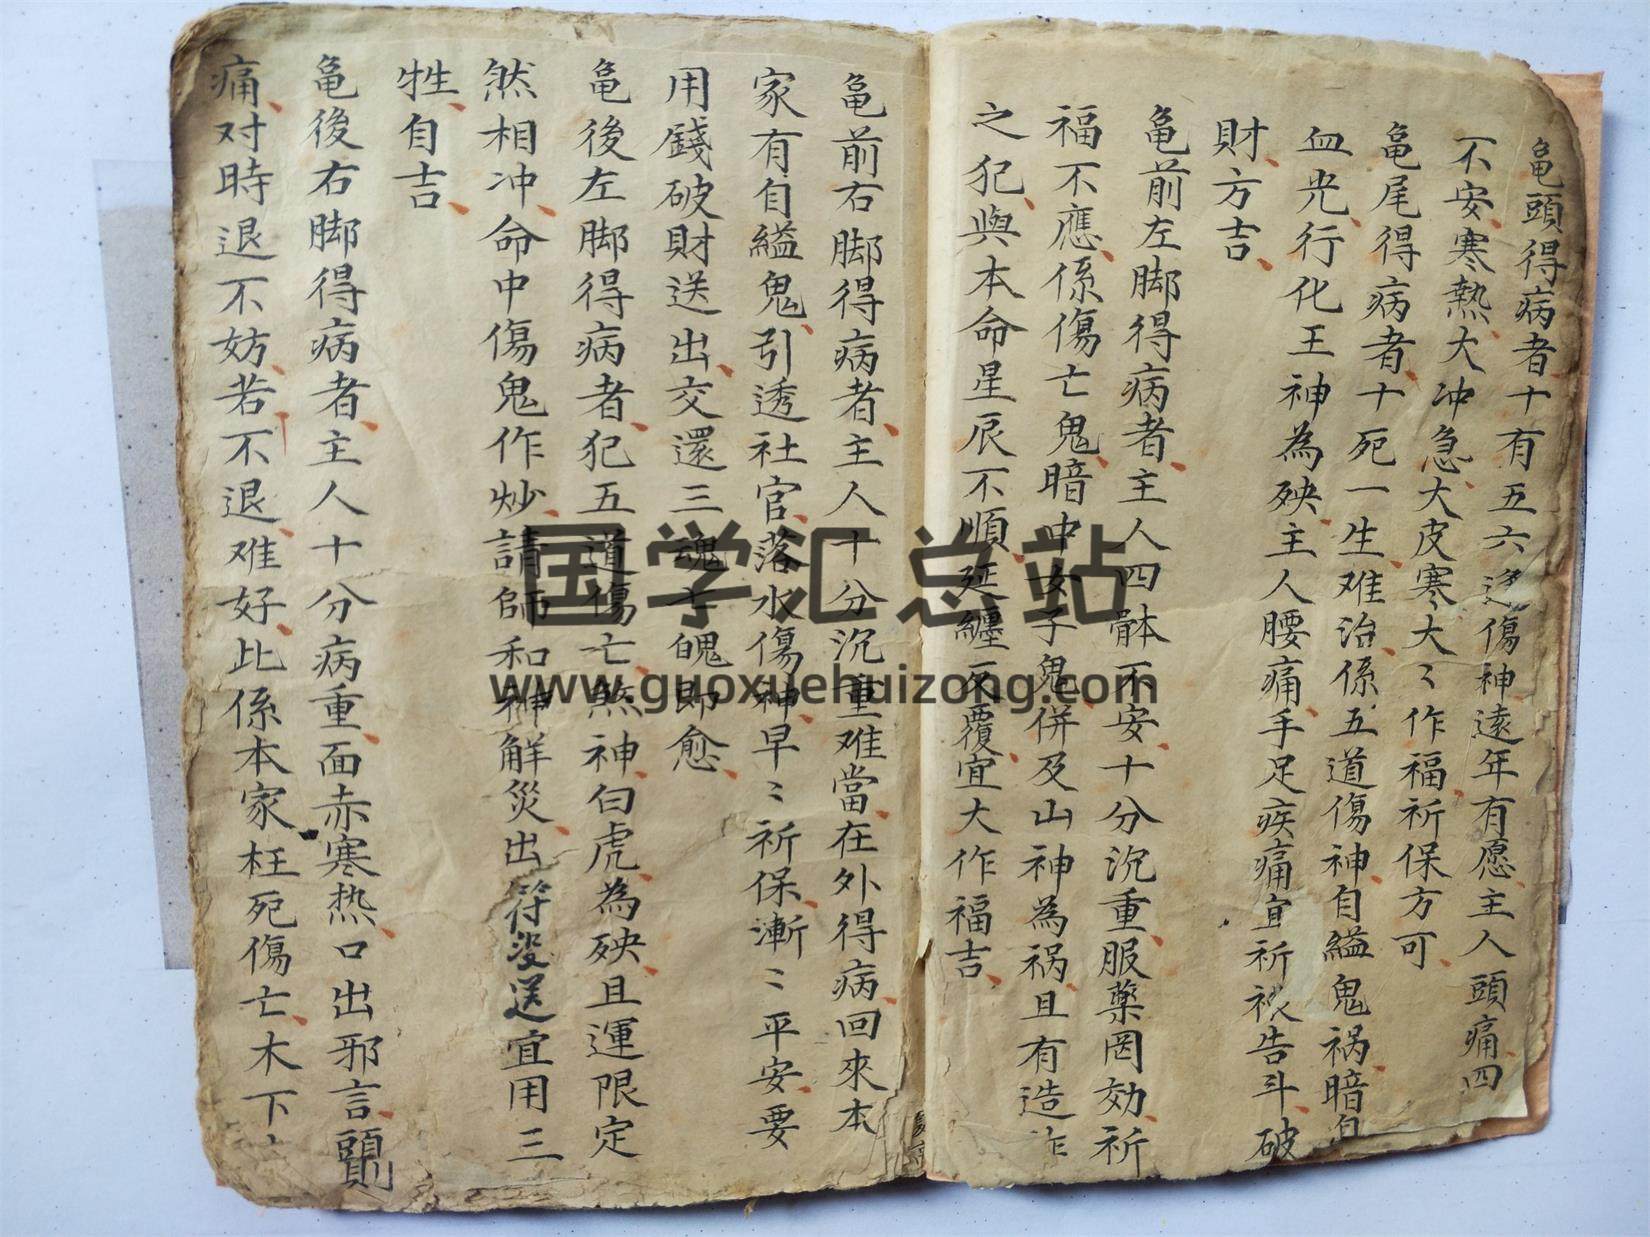 亀頭得病者十有五六逢傷神遠年有愿主人頭痛四
不安寒熱大冲急大皮寒大〻作福祈保方可
亀尾得病者十死一生难治係五道傷神自縊鬼祸暗
血光行化王神為殃主人腰痛手足疾痛宜祈禳告斗破
財方吉
亀前左脚得病者主人四骵不安十分沉重服藥罔効祈
福不應係傷亡鬼暗中女子鬼併及山神為祸且有造
之犯與本命星辰不順延纏反覆宜大作福吉
亀前右脚得病者主人十分沉重难當在外得病回來本
家有自縊鬼引透社官落水傷神早〻祈保漸〻平安要
用錢破財送出交還三魂七魄即愈
亀後左脚得病者犯五道傷亡煞神白虎為殃且運限定
然相冲命中傷鬼作炒請師和神解災出符没送宜用三
牲自吉
亀後右脚得病者主人十分病重面赤寒热口出邪言
痛对時退不妨若不退难好此係本家枉死傷亡木下
国学汇总站
www.guoxuehuizong.com